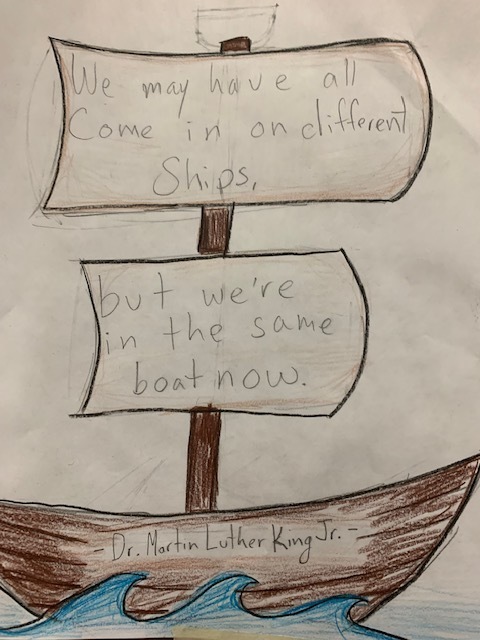 We may have all
Come in on different
Ships,
but we're
in the same
boat now.
- Dr. Martin Luther King Jr. -